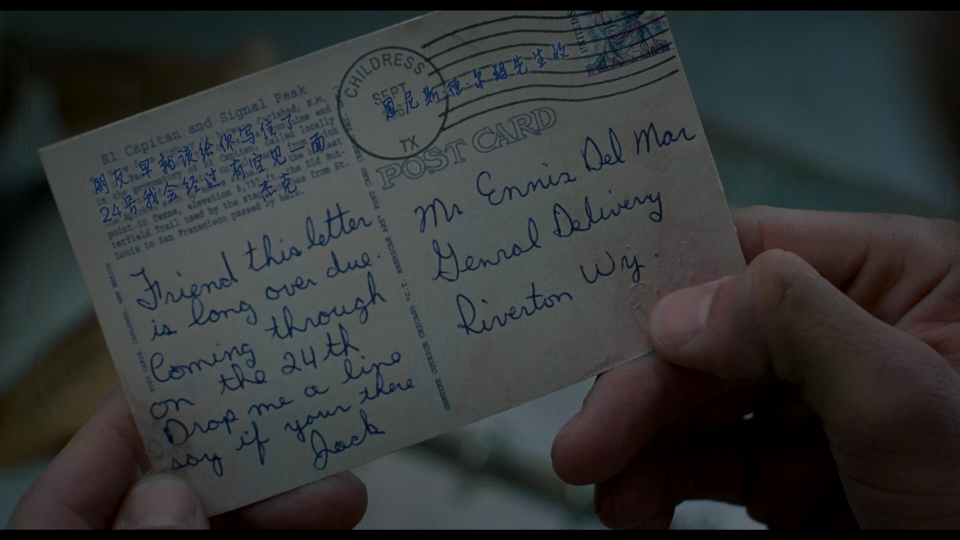 El Capitan and Signal Peak
朋友早就该给你写信了
24号我会经过 有空见一面
杰克
terfield Trail used by the stage lines from St.
Louis to San Francisco passed by here.
Friend this letter
is long over due.
Coming through
on the 24th
Drop me a line
say if your there
Jack
CHILDRESS
SEPT
TX
恩尼斯·德尔玛先生收
POST CARD
Mr Ennis Del Mar
Genral Delivery
Riverton Wy.